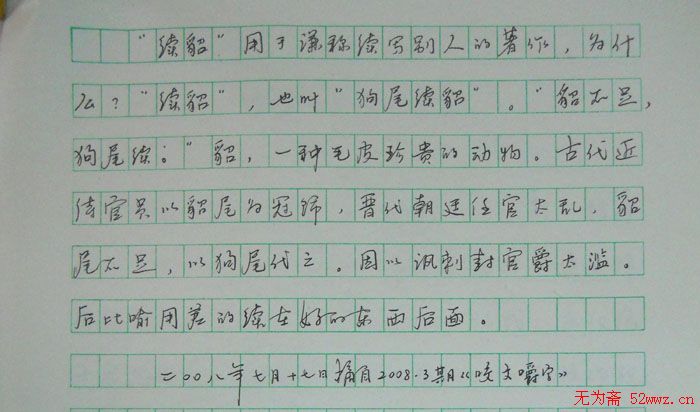 “续貂”用于谦称续写别人的著作，为什
么？“续貂”，也叫“狗尾续貂”。“貂不足，
狗尾续。”貂，一种毛皮珍贵的动物。古代近
侍官员以貂尾为冠饰，晋代朝廷任官太乱，貂
尾不足，以狗尾代之。因以讽刺封官爵太滥。
后比喻用差的续在好的东西后面。
二〇〇八年七月十七日摘自2008.3期《咬文嚼字》
无为斋 52wwz.cn